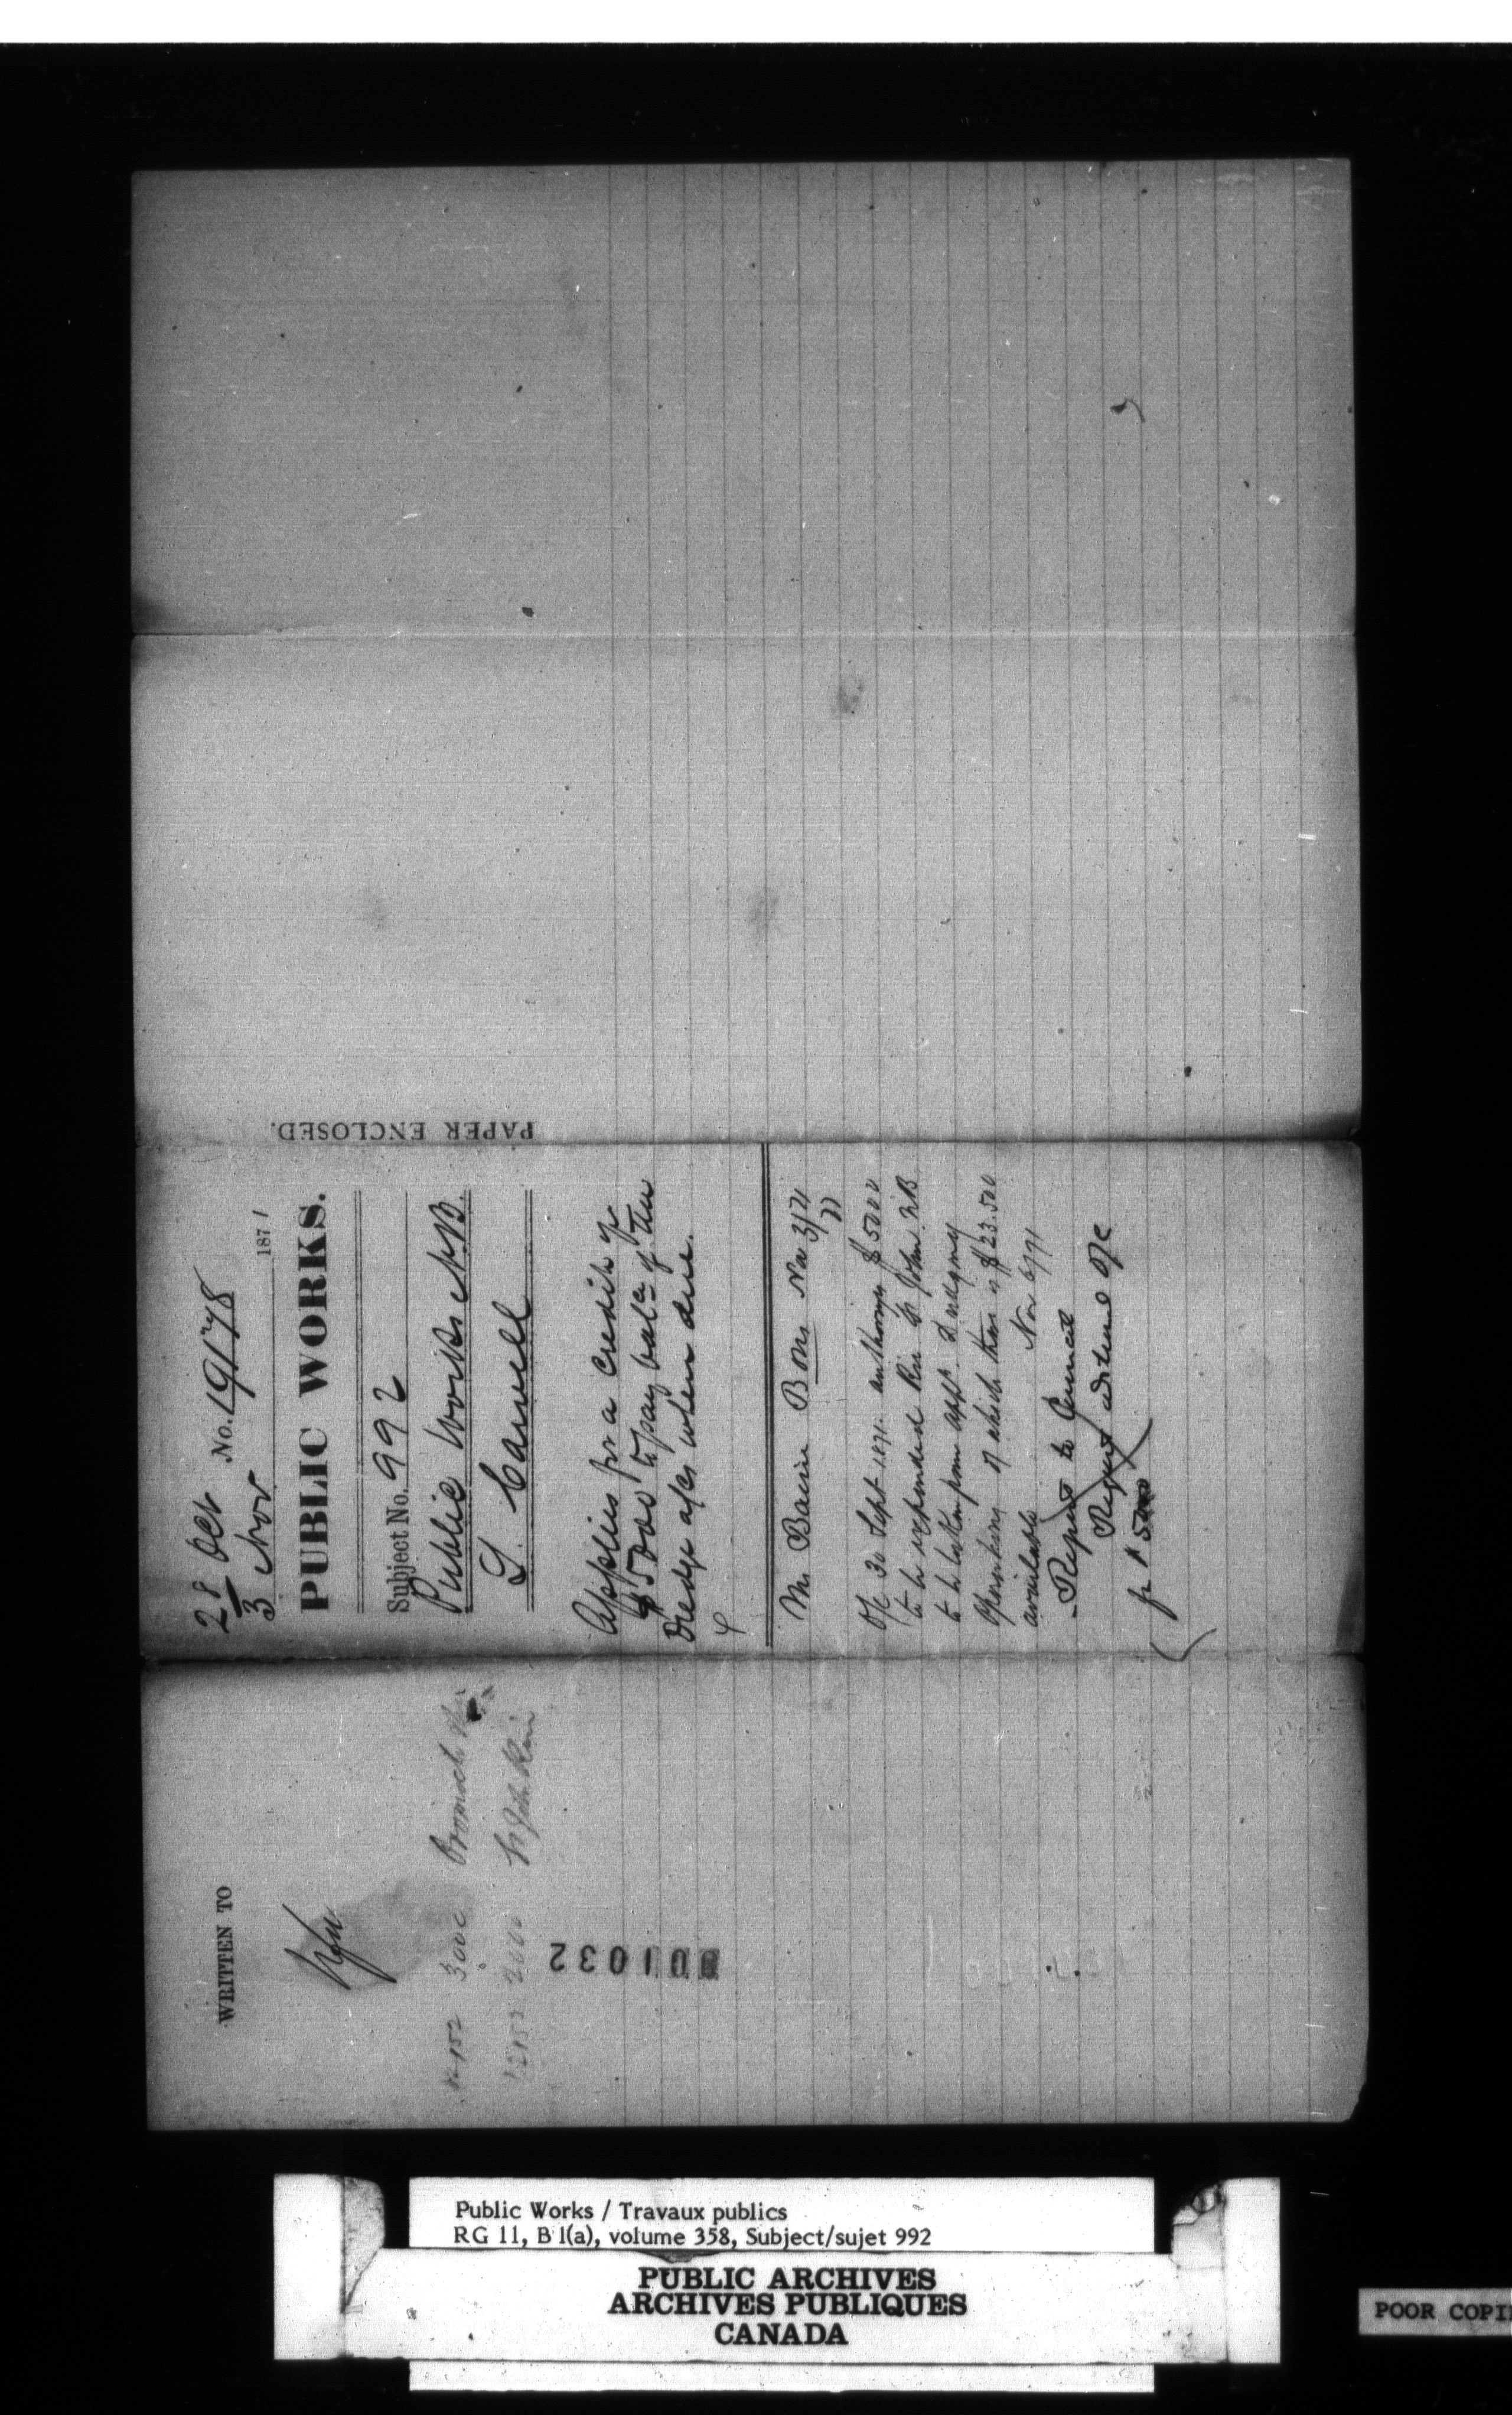 28 Oct No. 19178
3 Nov 1871
PUBLIC WORKS.
Subject No. 992
Public Works N.B.
Applies for a credit of
$5000 to pay balce of the
Dredge a/cs when due.
Mr Baine Nov 3/71
O/C 30 Sept 1871 authorizes $5000
to be expended Riv St John N.B.
to be taken from appn Dredging
Operations of which there is $23.500
available Nov 6/71
Report to Council
Request additional O/C
for $5000
PAPER ENCLOSED.
WRITTEN TO
12152 3000 Oromocto
12153 2000 St John Riv
001032
Public Works / Travaux publics
RG 11, B 1(a), volume 358, Subject/sujet 992
PUBLIC ARCHIVES
ARCHIVES PUBLIQUES
CANADA
POOR COPI